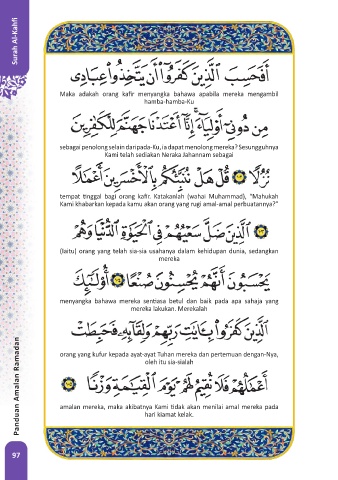 Surah Al-Kahfi
أَفَحَسِبَ ٱلَّذِينَ كَفَرُوٓا۟ أَن يَتَّخِذُوا۟ عِبَادِى
Maka adakah orang kafir menyangka bahawa apabila mereka mengambil
hamba-hamba-Ku
مِن دُونِىٓ أَوْلِيَآءَ ۚ إِنَّآ أَعْتَدْنَا جَهَنَّمَ لِلْكَٰفِرِينَ
sebagai penolong selain daripada-Ku, ia dapat menolong mereka? Sesungguhnya
Kami telah sediakan Neraka Jahannam sebagai
نُزُلًا ١٠٢ قُلْ هَلْ نُنَبِّئُكُم بِٱلْأَخْسَرِينَ أَعْمَٰلًا
tempat tinggal bagi orang kafir. Katakanlah (wahai Muhammad), "Mahukah
Kami khabarkan kepada kamu akan orang yang rugi amal-amal perbuatannya?"
١٠٣ ٱلَّذِينَ ضَلَّ سَعْيُهُمْ فِى ٱلْحَيَوٰةِ ٱلدُّنْيَا وَهُمْ
(Iaitu) orang yang telah sia-sia usahanya dalam kehidupan dunia, sedangkan
mereka
يَحْسَبُونَ أَنَّهُمْ يُحْسِنُونَ صُنْعًا ١٠٤ أُو۟لَٰٓئِكَ
menyangka bahawa mereka sentiasa betul dan baik pada apa sahaja yang
mereka lakukan. Merekalah
ٱلَّذِينَ كَفَرُوا۟ بِـَٔايَٰتِ رَبِّهِمْ وَلِقَآئِهِۦ فَحَبِطَتْ
orang yang kufur kepada ayat-ayat Tuhan mereka dan pertemuan dengan-Nya,
oleh itu sia-sialah
أَعْمَٰلُهُمْ فَلَا نُقِيمُ لَهُمْ يَوْمَ ٱلْقِيَٰمَةِ وَزْنًا ١٠٥
amalan mereka, maka akibatnya Kami tidak akan menilai amal mereka pada
hari kiamat kelak.
Panduan Amalan Ramadan
97